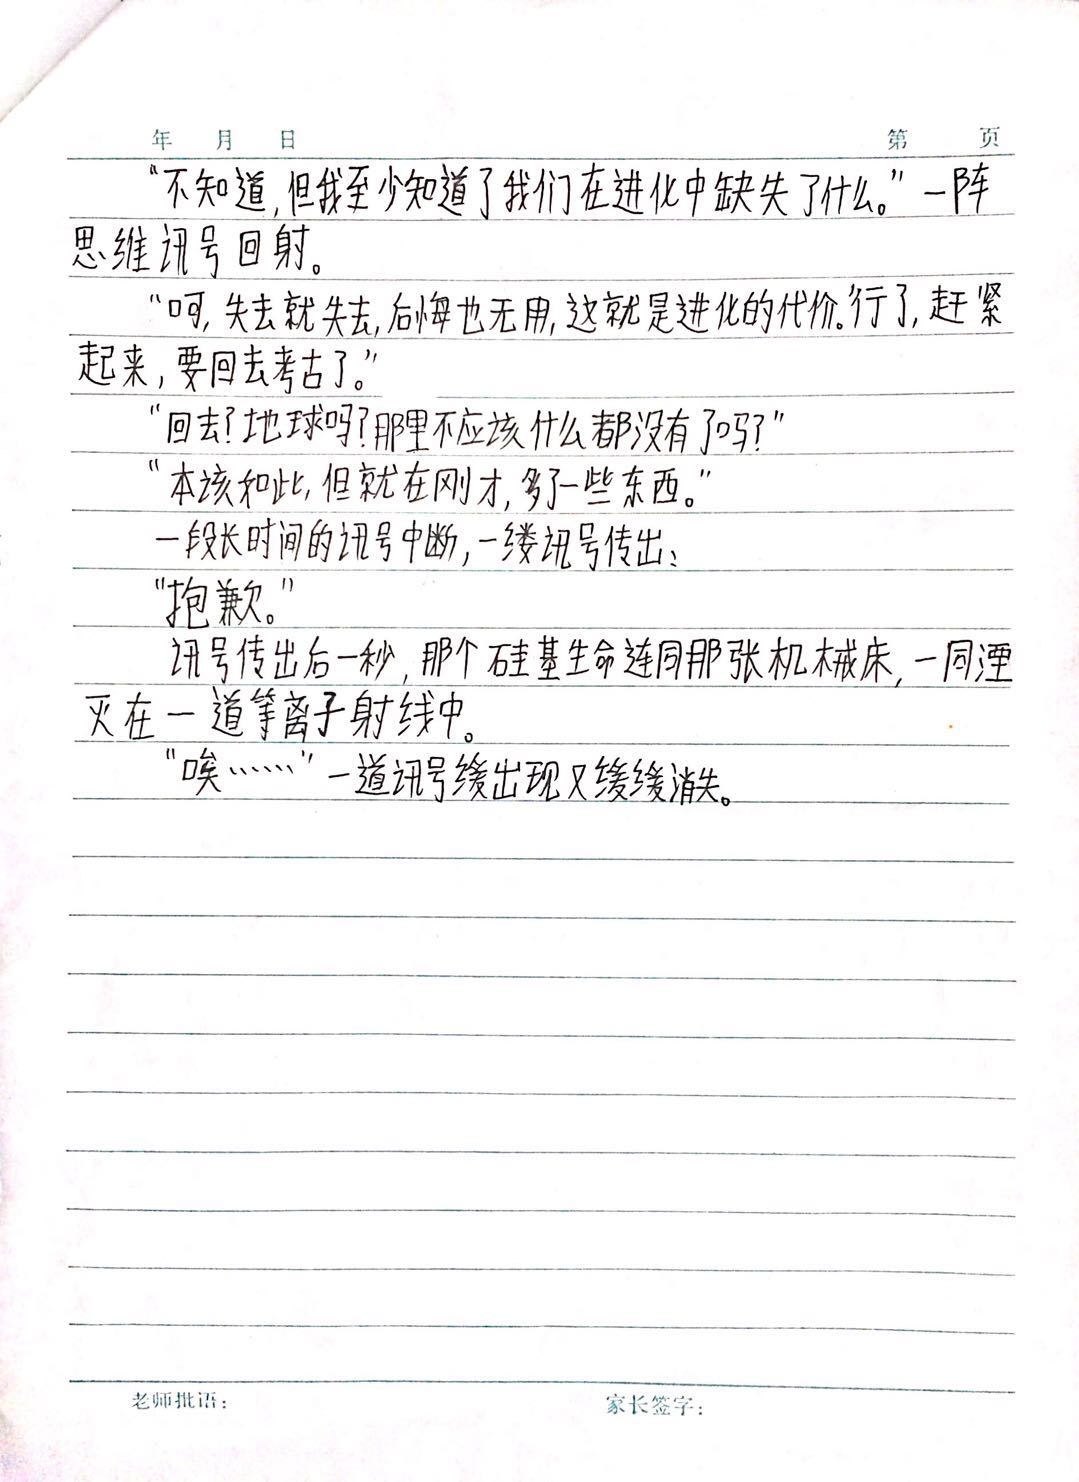 年 月 日 第 页
“不知道,但我至少知道了我们在进化中缺失了什么。”一阵
思维讯号回射。
“呵,失去就失去,后悔也无用,这就是进化的代价。”行了,赶紧
起来,要回去考古了。”
“回去?地球吗?那里不应该什么都没有了吗?”
“本该如此,但就在刚才,多了一些东西。”
一段长时间的讯号中断,一缕讯号传出:
“抱歉。”
讯号传出后一秒,那个硅基生命连同那张机械床,一同湮
灭在一道等离子射线中。
“唉……”一道讯号缓出现又缓缓消失。
老师批语: 家长签字: